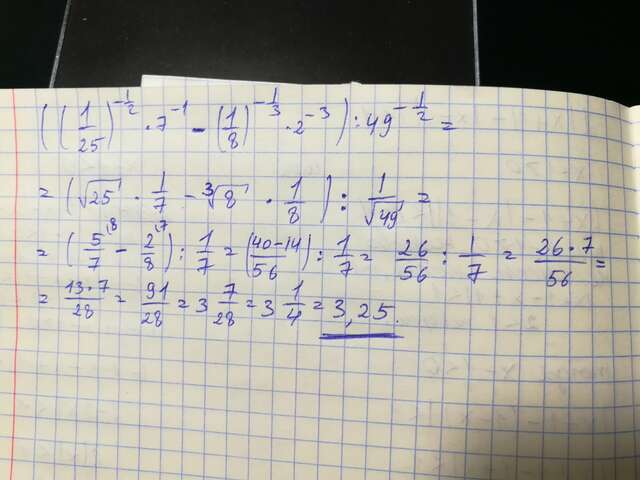 ((1/25)^(-1/2) · 7^(-1) - (1/8)^(-1/3) · 2^(-3)) : 49^(-1/2) =
= (√25 · 1/7 - ∛8 · 1/8) : 1/√49 =
= (5/7 ^(\8) - 2/8 ^(\7)) : 1/7 = (40-14/56) : 1/7 = 26/56 : 1/7 = 26·7/56 =
= 13·7/28 = 91/28 = 3 7/28 = 3 1/4 = 3,25.